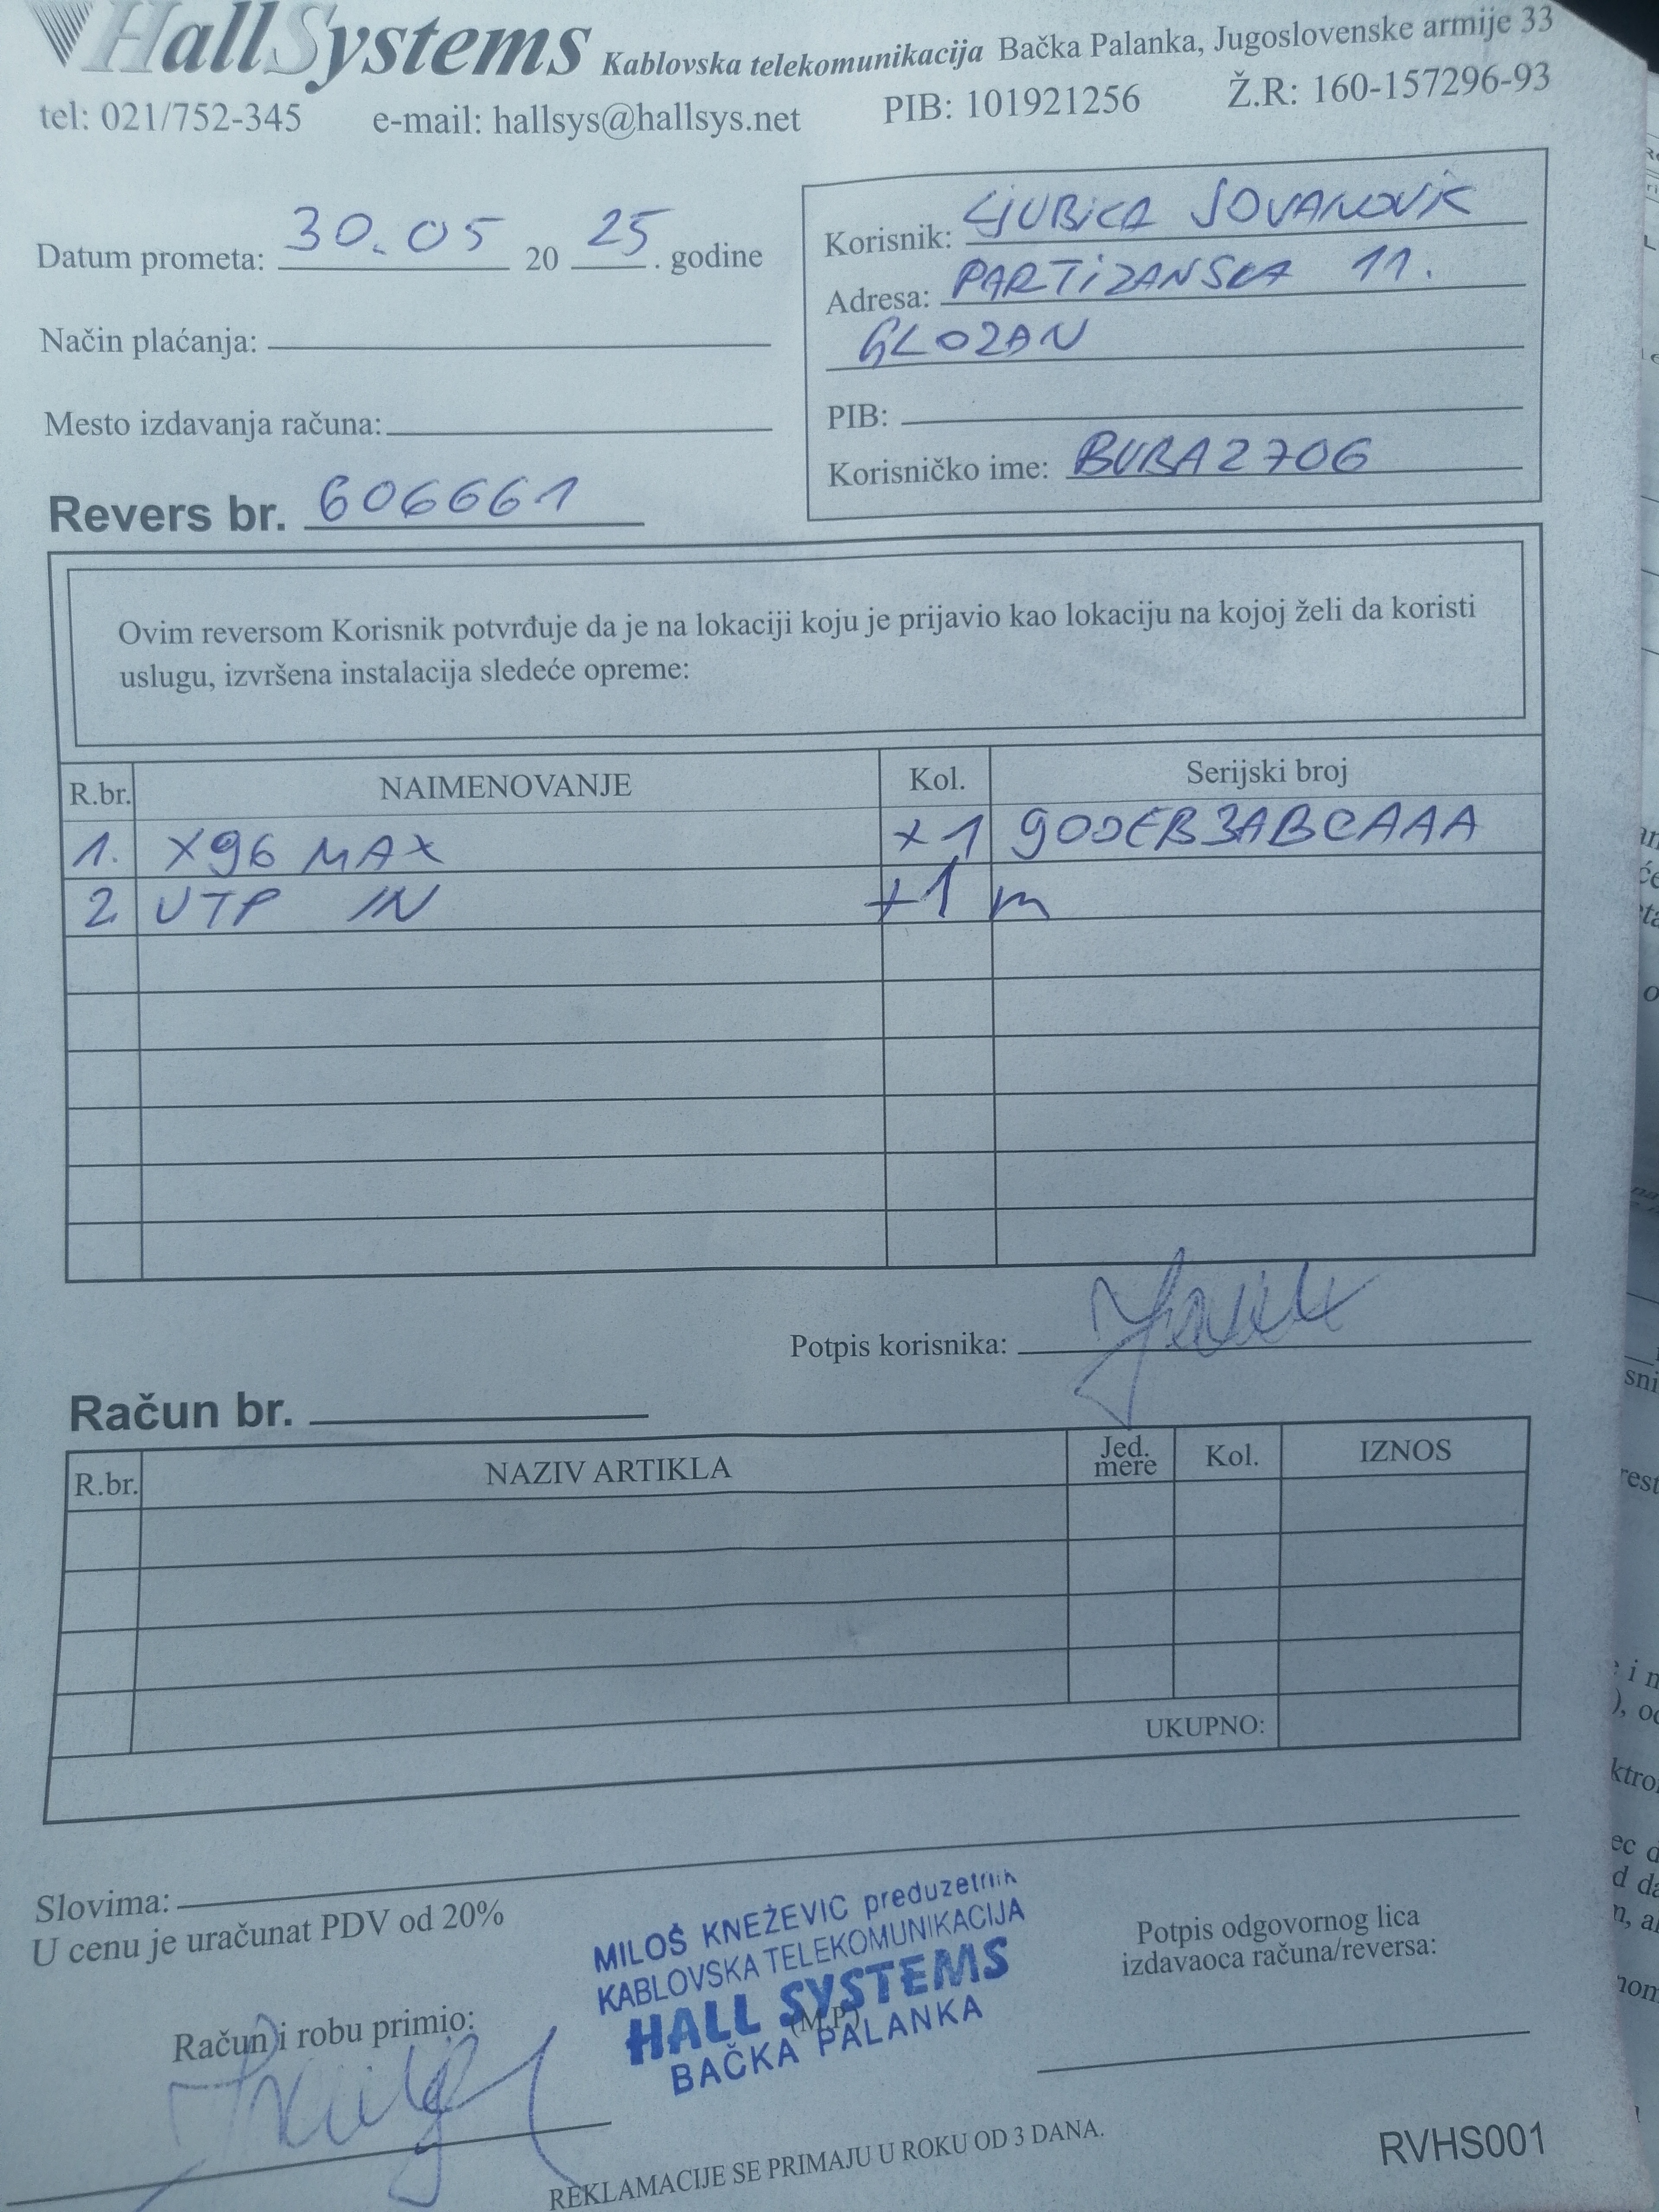 HallSystems Kablovska telekomunikacija Bačka Palanka, Jugoslovenske armije 33
tel: 021/752-345 e-mail: hallsys@hallsys.net PIB: 101921256 Ž.R: 160-157296-93
Datum prometa: 30.05 20 25 . godine
Način plaćanja:
Mesto izdavanja računa:
Korisnik: LJUBICA JOVANOVIĆ
Adresa: PARTIZANSKA 11.
GLOZAN
PIB:
Korisničko ime: BUBA2706
Revers br. 606661
Ovim reversom Korisnik potvrđuje da je na lokaciji koju je prijavio kao lokaciju na kojoj želi da koristi
uslugu, izvršena instalacija sledeće opreme:
R.br. NAIMENOVANJE Kol. Serijski broj
1. X96 MAX x1 900EB3ABCAAA
2. UTP IN +1 m
Potpis korisnika:
Račun br.
R.br. NAZIV ARTIKLA Jed. mere Kol. IZNOS
UKUPNO:
Slovima:
U cenu je uračunat PDV od 20%
Račun i robu primio:
MILOŠ KNEŽEVIC preduzetnik
KABLOVSKA TELEKOMUNIKACIJA
HALL SYSTEMS
(M.P)
BAČKA PALANKA
Potpis odgovornog lica
izdavaoca računa/reversa:
REKLAMACIJE SE PRIMAJU U ROKU OD 3 DANA.
RVHS001